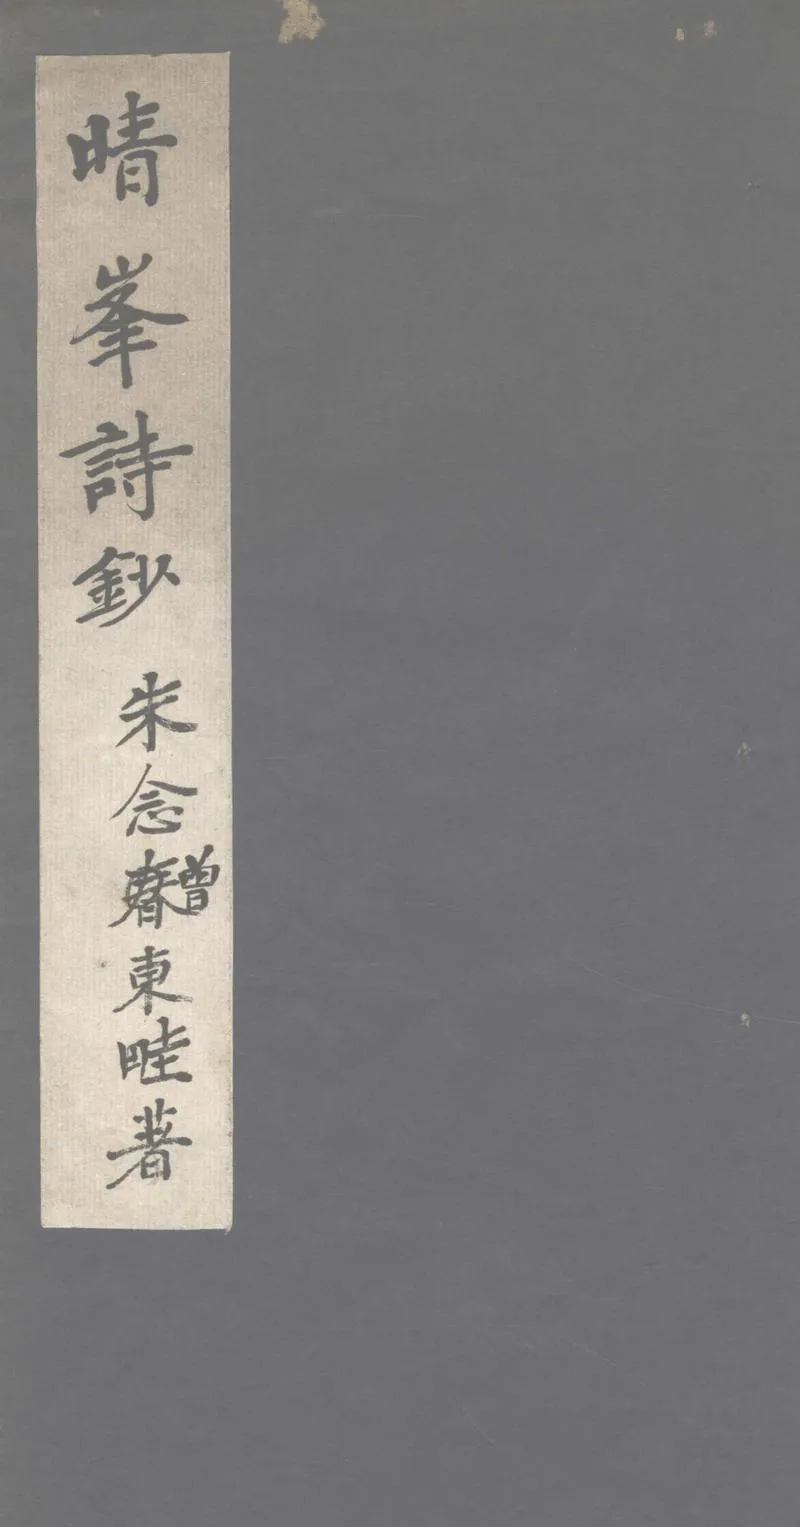 晴峯詩鈔 朱念曾東畦著